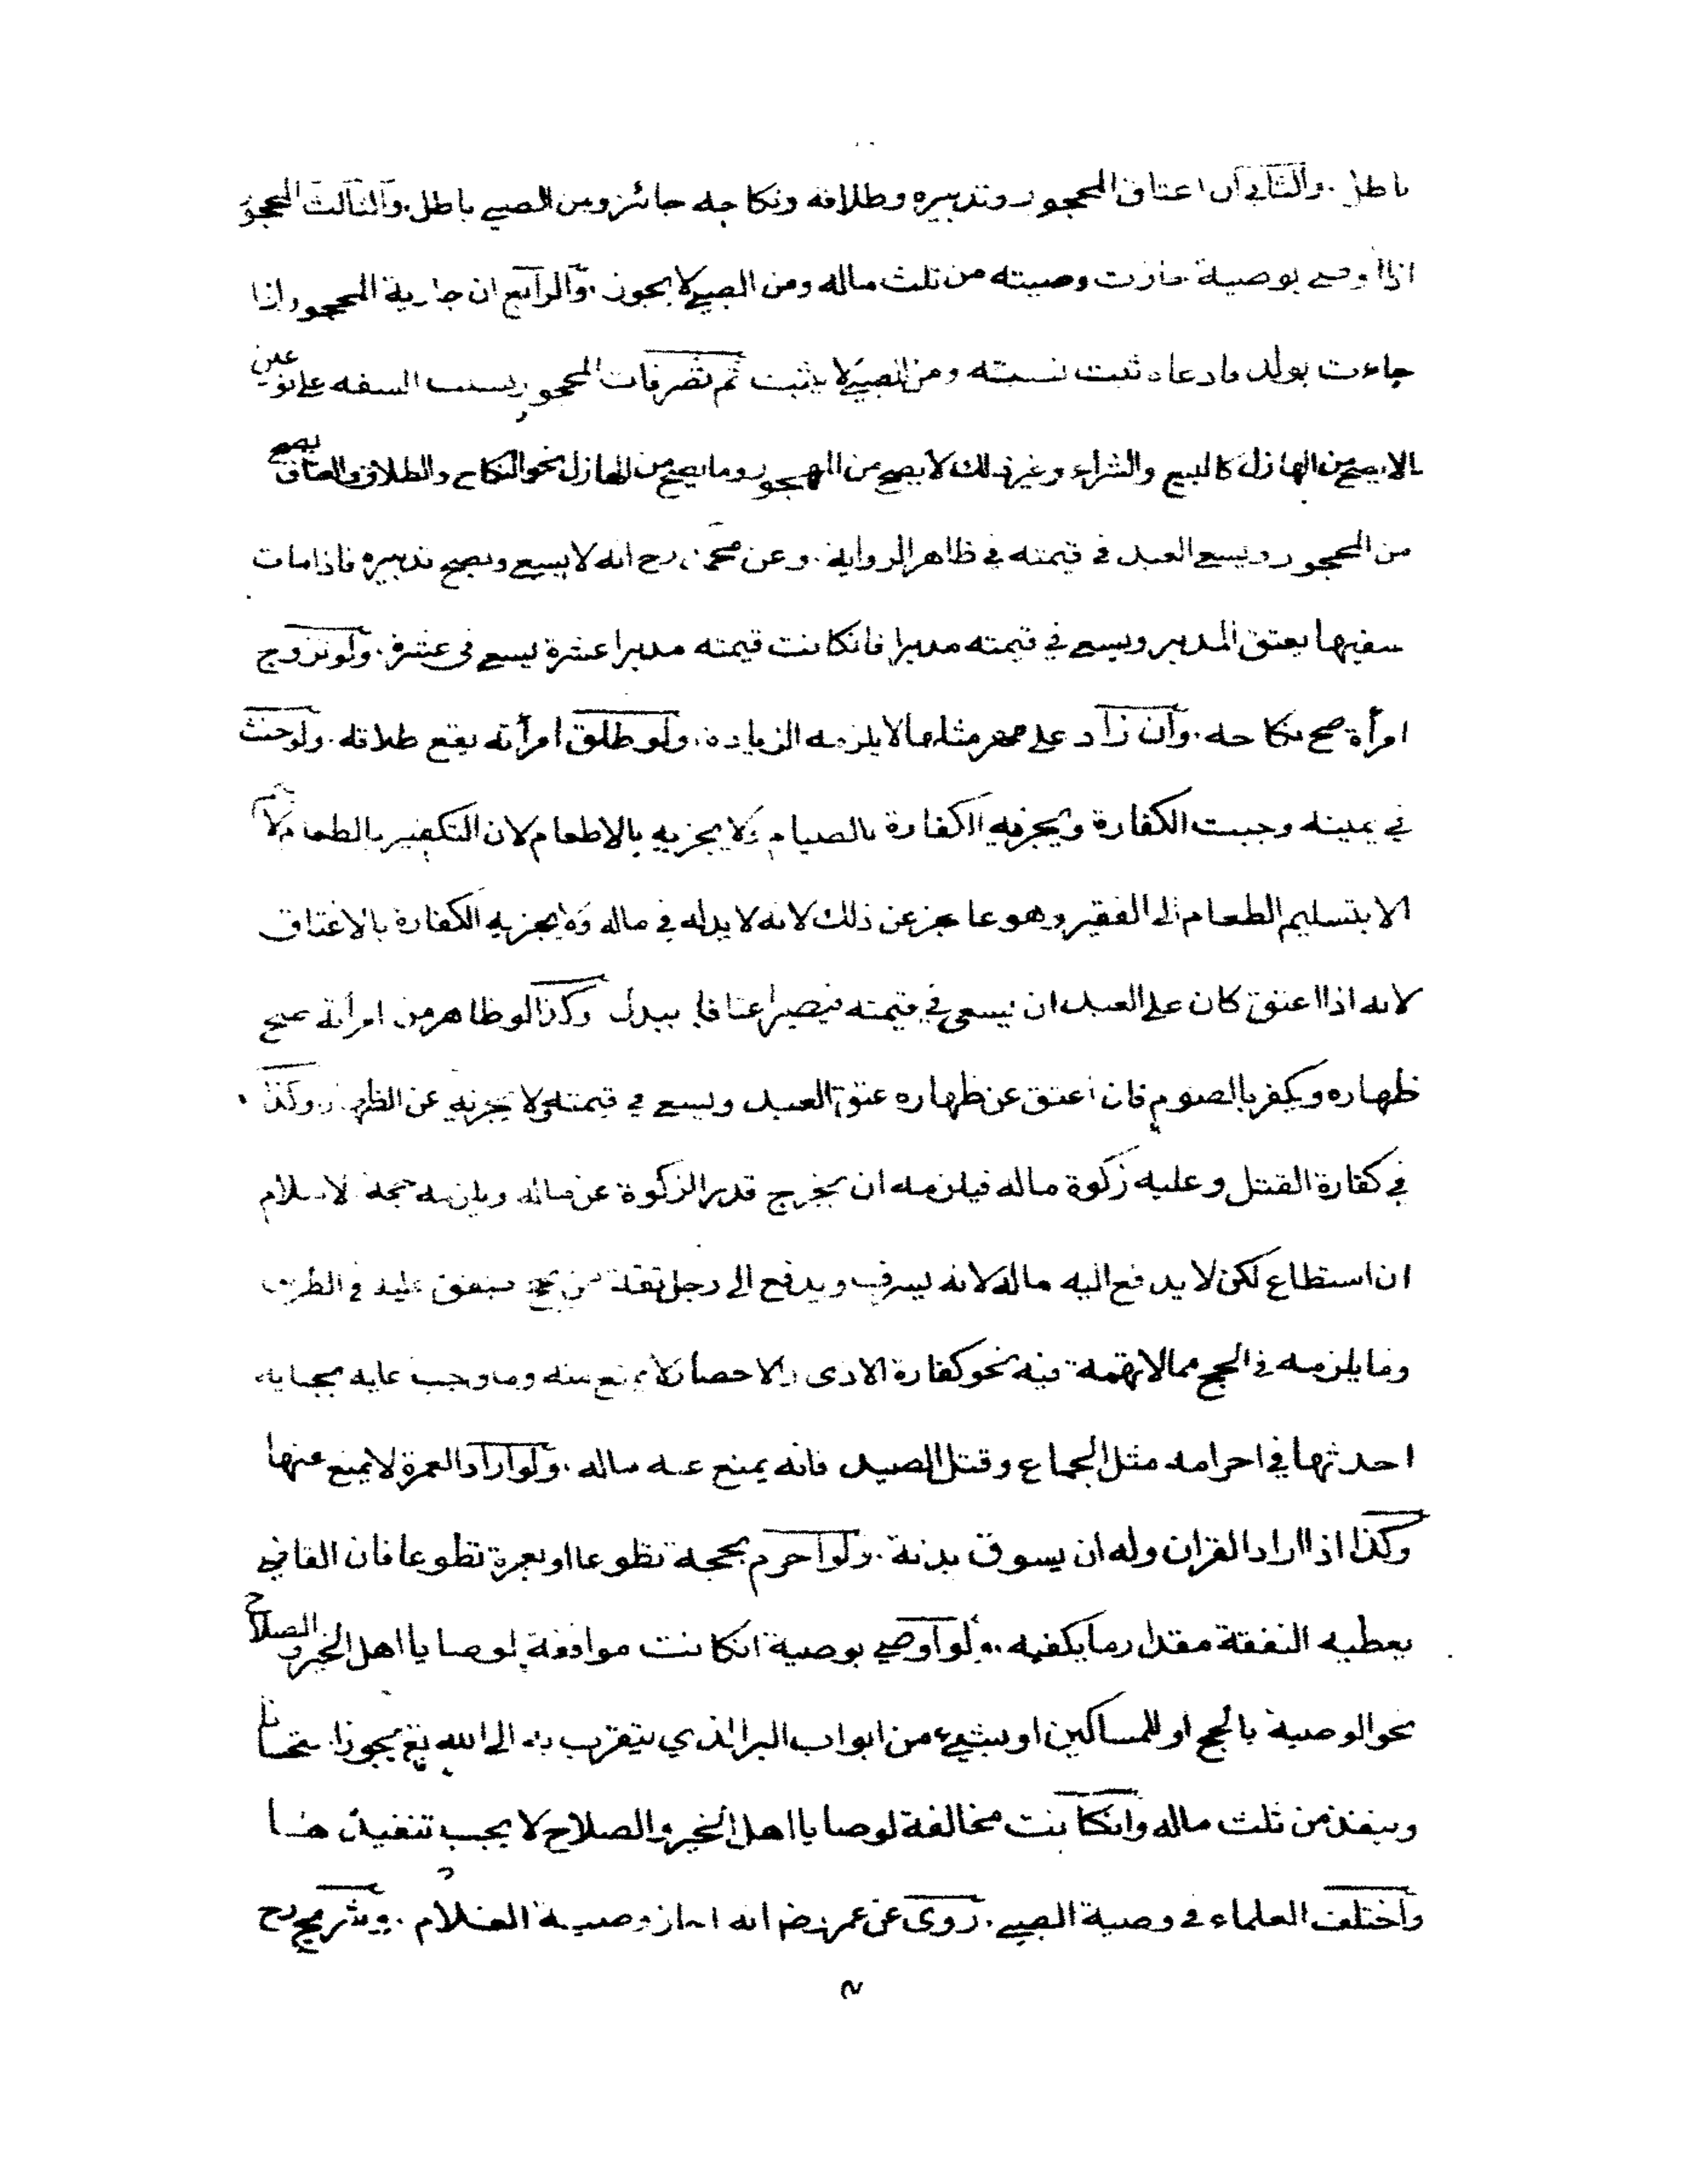 باطل. والثاني ان اعتاق المحجور وتدبيره وطلاقه ونكاحه جائز ومن الصبي باطل. والثالث المحجور
اذا اوصى بوصية جازت وصيته من ثلث ماله ومن الصبي لا يجوز. والرابع ان جارية المحجور اذا
جاءت بولد فادعاه ثبت نسبته ومن الصبي لا يثبت ثم تصرفات المحجور بسبب السفه على نوعين
مالا يصح من الهازل كالبيع والشراء وغير ذلك لا يصح من المحجور وما يصح من الهازل نحو النكاح والطلاق والعتاق يصح
من المحجور ويسع العبد في قيمته في ظاهر الرواية. وعن محمد رح انه لا يسع ويصح تدبيره فاذا مات
سفيها يعتق المدبر ويسع في قيمته مدبرا فانكانت قيمته مدبرا عشرة يسع في عشرة. ولو تزوج
امرأة صح نكاحه. وان زاد على مهر مثلها لا يلزمه الزيادة. ولو طلق امرأته يقع طلاقه. ولو حنث
في يمينه وجبت الكفارة ويجزيه الكفارة بالصيام ولا يجزيه بالاطعام لان التكفير بالطعام لا يتم
الا بتسليم الطعام الى الفقير وهو عاجز عن ذلك لانه لا يد له في ماله ولا يجزيه الكفارة بالاعتاق
لانه اذا اعتق كان على العبد ان يسعى في قيمته فيصير اعتاقا ببدل وكذا لو ظاهر من امرأته صح
ظهاره ويكفر بالصوم فان اعتق عن ظهاره عتق العبد ويسع في قيمته ولا يجزيه عن الظهار. وكذا
في كفارة القتل وعليه زكوة ماله فيلزمه ان يخرج قدر الزكوة عن ماله ويلزمه حجة الاسلام
ان استطاع لكن لا يدفع اليه ماله لانه يسرف ويدفع الى رجل ثقة ينفق عليه في الطريق
وما يلزمه في الحج مما لا تهمة فيه نحو كفارة الاذى والاحصار لا يمنع منه وما وجب عليه بجناية
احدثها في احرامه مثل الجماع وقتل الصيد فانه يمنع عنه ماله. ولو اراد العمرة لا يمنع عنها
وكذا اذا اراد القران وله ان يسوق بدنة. ولو احرم بحجة تطوعا او بعمرة تطوعا فان القاضي
يعطيه النفقة مقدار ما يكفيه. ولو اوصى بوصية انكانت موافقة لوصايا اهل الخير والصلاح
نحو الوصية بالحج او للمساكين او بشيء من ابواب البر الذي يتقرب به الى الله تع يجوز استحسانا
وينفذ من ثلث ماله وانكانت مخالفة لوصايا اهل الخير والصلاح لا يجب تنفيذها
واختلف العلماء في وصية الصبي. روى عن عمر رضه انه اجاز وصية الغلام. وشريح رح